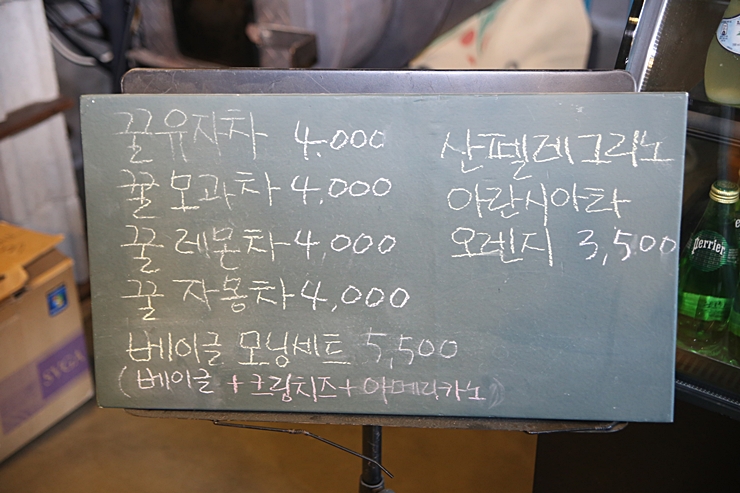 꿀유자차 4.000
꿀 모과차 4,000
꿀 레몬차 4,000
꿀 자몽차 4,000
베이글 모닝세트 5,500
(베이글 + 크림치즈 + 아메리카노)
산펠레그리노
아란시아타
오렌지 3,500
Perrier
SVGA